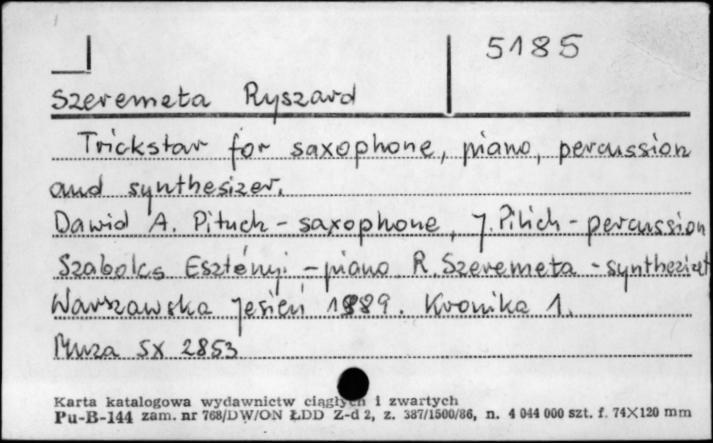 5185
Szeremeta Ryszard
Trickstar for saxophone, piano, percussion
and synthesizer.
Dawid A. Pituch - saxophone, J. Pilich - percussion
Szabolcs Esztényi - piano R. Szeremeta - syntheziet
Warszawska Jesień 1989. Kronika 1.
Muza SX 2853
Karta katalogowa wydawnictw ciągłych i zwartych
Pu-B-144 zam. nr 768/DW/ON ŁDD Z-d 2, z. 387/1500/86, n. 4 044 000 szt. f. 74×120 mm